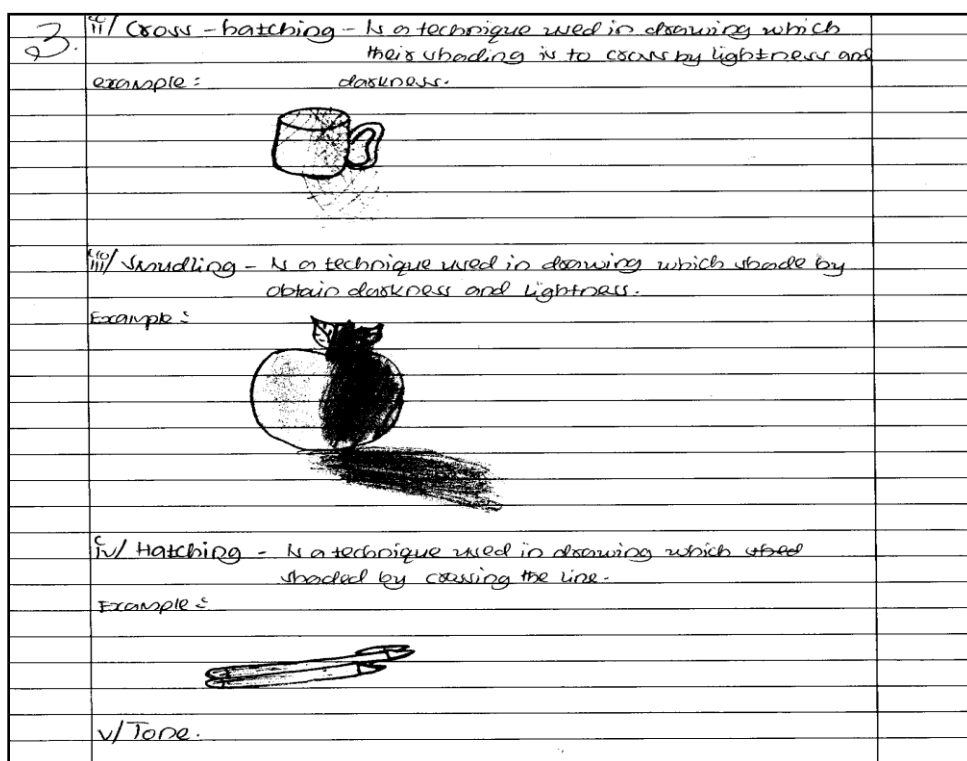 3.
ii/ Cross-hatching - Is a technique used in drawing which
their shading is to cross by lightness and
example: darkness.
iii/ Smudling - Is a technique used in drawing which shade by
obtain darkness and lightness.
Example:
iv/ Hatching - Is a technique used in drawing which used
shaded by crossing the line.
Example:
v/ Tone.